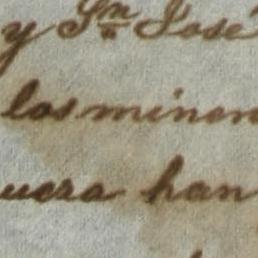 y Sn José
los minon
ueza han